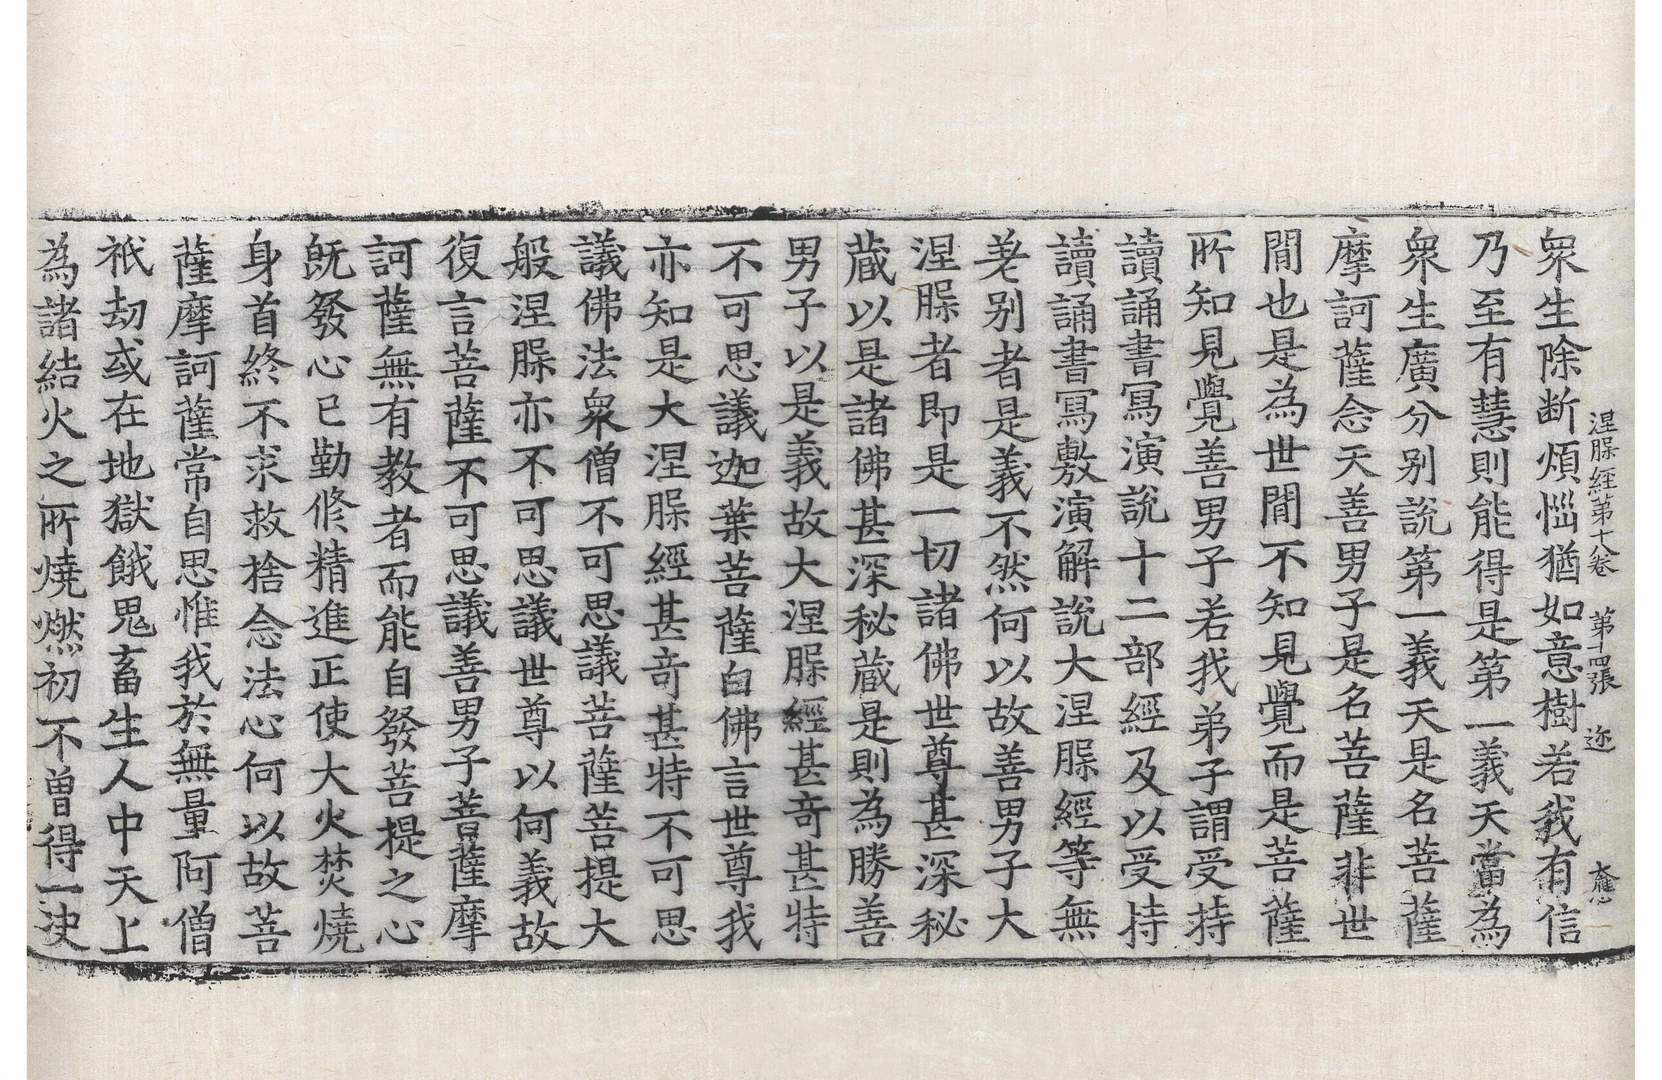 涅槃經第十八卷 第十四張 迩
衆生除断煩惱猶如意樹若我有信
乃至有慧則能得是第一義天當為
衆生廣分別說第一義天是名菩薩
摩訶薩念天善男子是名菩薩非世
間也是為世間不知見覺而是菩薩
所知見覺善男子若我弟子謂受持
讀誦書寫演說十二部經及以受持
讀誦書寫敷演解說大涅槃經等無
差別者是義不然何以故善男子大
涅槃者即是一切諸佛世尊甚深秘
蔵以是諸佛甚深秘蔵是則為勝善
男子以是義故大涅槃經甚竒甚特
不可思議迦葉菩薩白佛言世尊我
亦知是大涅槃經甚竒甚特不可思
議佛法衆僧不可思議菩薩菩提大
般涅槃亦不可思議世尊以何義故
復言菩薩不可思議善男子菩薩摩
訶薩無有教者而能自發菩提之心
旣發心已勤修精進正使大火焚燒
身首終不求救捨念法心何以故菩
薩摩訶薩常自思惟我於無量阿僧
祇劫或在地獄餓鬼畜生人中天上
為諸結火之所燒燃初不曾得一决